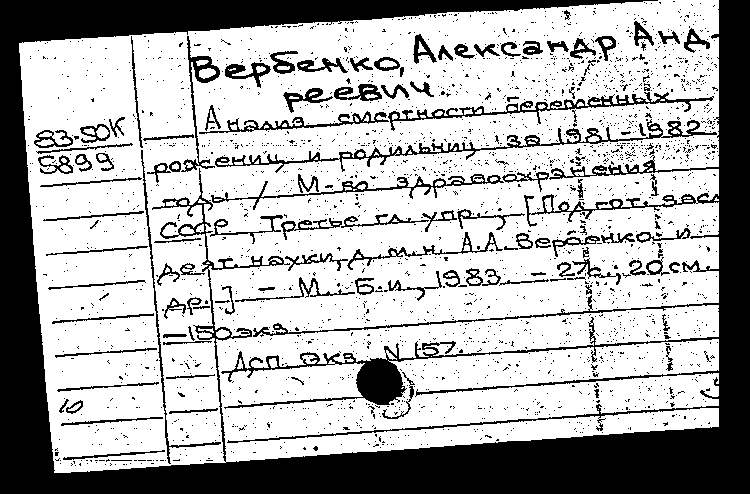 Вербенко, Александр Анд-
реевич.
83-50К
5899
Анализ смертности беременных,
рожениц и родильниц за 1981-1982
годы / М-во здравоохранения
СССР, Третье гл. упр.; [Подгот. засл.
деят. науки, д.м.н. А.А. Вербенко и
др.] - М.: Б.и., 1983. - 27с., 20см.
-150экз.
Дсп. Экз. N 157.
10